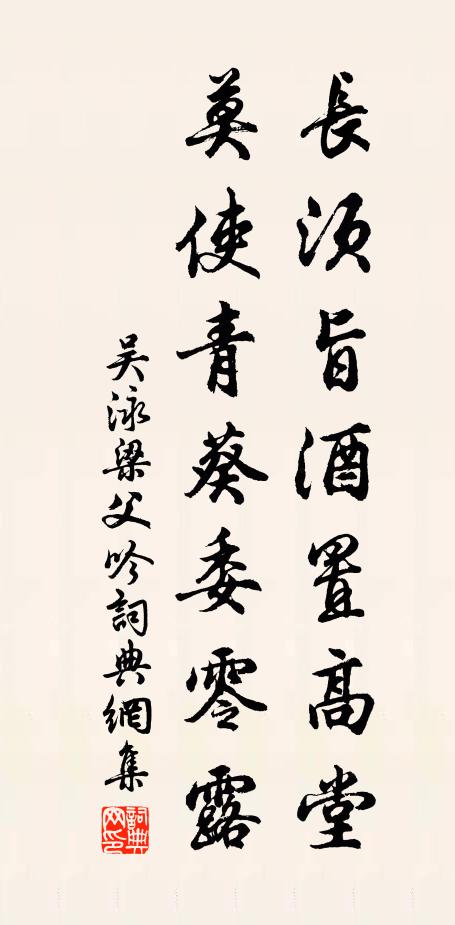 長須旨酒置高堂
莫使青葵委零露
吴泳梁父吟詞典網集
詞典网印